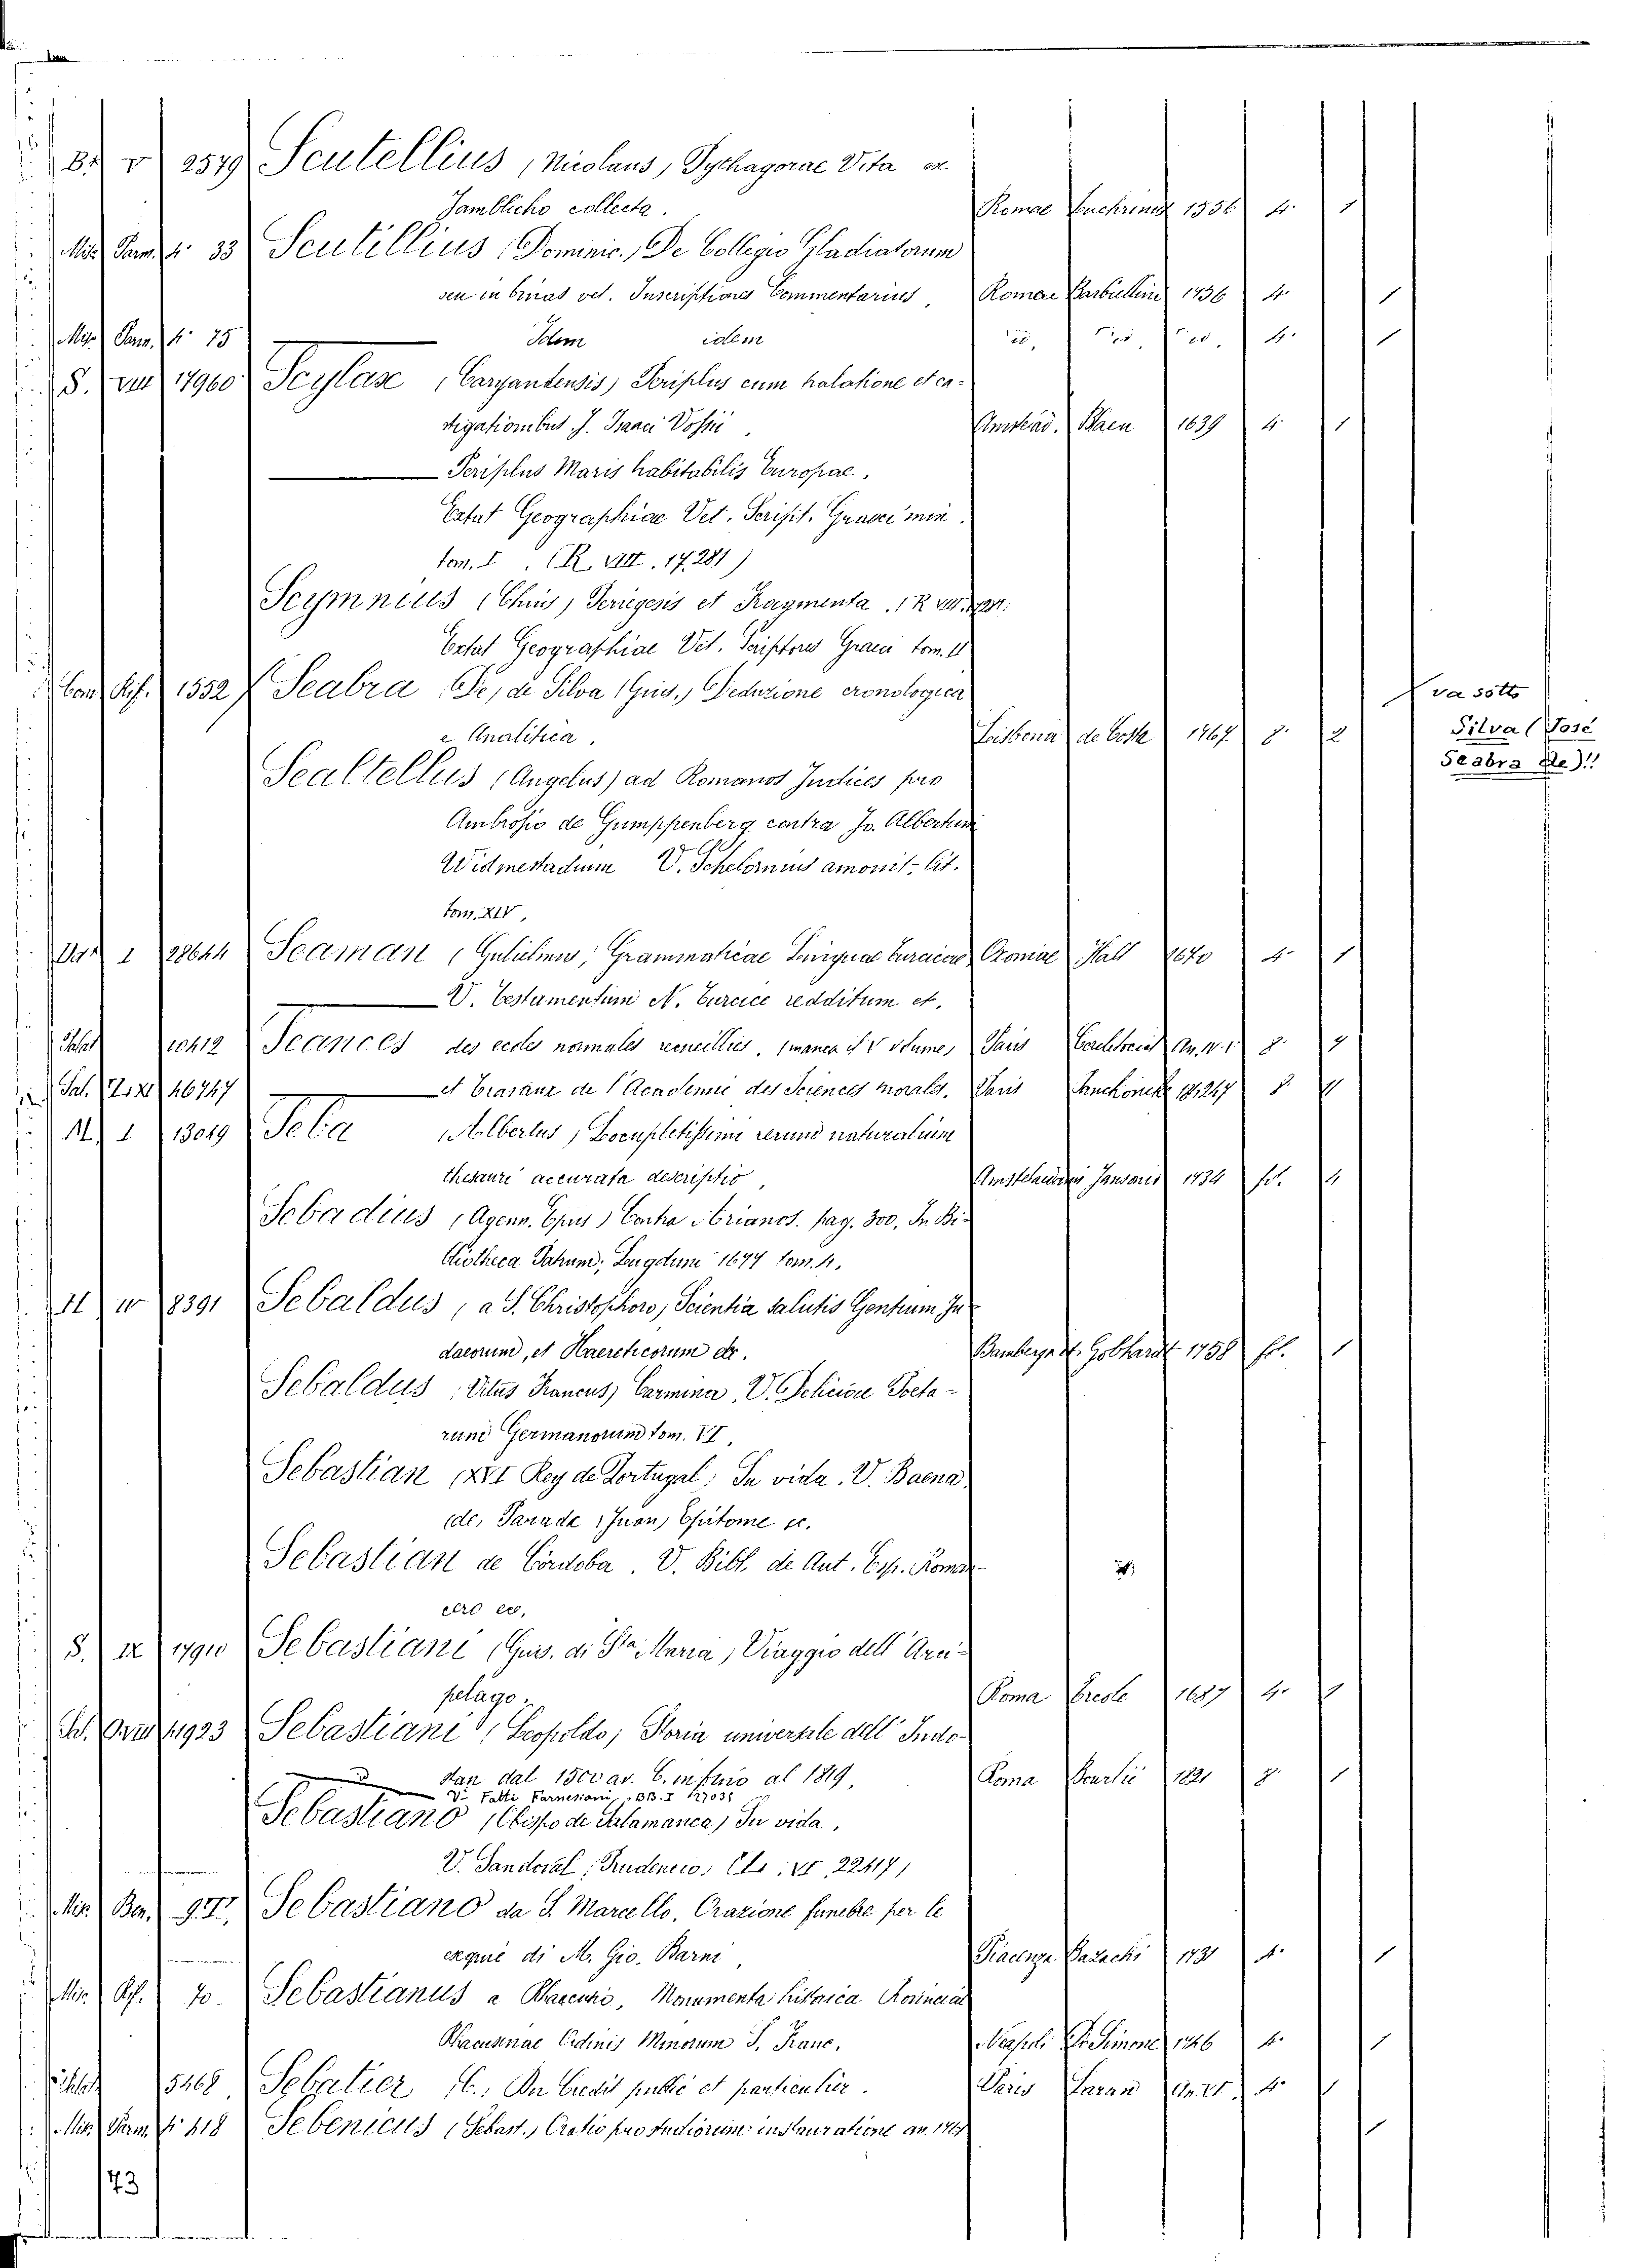 B. V 2579 Scutellius (Nicolaus) Pythagorae Vita ex
Jamblicho collecta. Romae 1556 4. 1
Mis. Parm. 4. 33 Scutillius (Dominic.) De Collegio Gladiatorum
seu in binas vet. Inscriptiones Commentarius, Romae Barbiellini 1756 4. 1
Mis. Parm. 4. 75 Idem idem id. id. id. 4. 1
S. VIII 17960 Scylax (Caryandensis) Periplus cum
J. Isaaci Vossii Amstelod. Blaeu 1639 4. 1
Periplus Maris habitabilis Europae.
Extat Geographiae Vet. Script. Graeci min.
tom. I. (R. VIII. 17281)
Scymnius (Chius) Periegesis et Fragmenta. (R. VIII.
Extat Geographiae Vet. Scriptores Graeci tom. II
1552 Seabra (De) de Silva (Gius.) Deduzione cronologica
e Analitica. Lisbona de Costa 1767 8. 2
va sotto
Silva (José
Seabra de)!!
Scaltellus (Angelus) ad Romanos Judices pro
Ambrosio de Gumppenberg contra Jo. Albertum
Widmestadium V. Schelornius amonit. lit.
tom. XIV,
1 28644 Seaman Grammaticae Linguae Turcicae Oxoniae Hall 1670 4. 1
V. Testamentum N. Turcice redditum et.
10412 Seances des ecoles normales recueillies, (manca il V volume) Paris 8.
Pal. 46747 et travaux de l'Academie des Sciences morales, Paris 8.
I 13049 Seba (Albertus) Locupletissimi rerum naturalium
thesauri accurata descriptio, Amstelaedami Jansonis 1734 fol. 4
Sebadius (Agenn. Epius) Contra Arianos. pag. 300. In Bi-
bliotheca Patrum, Lugduni 1677 tom. 4.
H IV 8391 Sebaldus (a S. Christophoro) Scientia salutis Gentium Ju-
daeorum, et Haereticorum etc. Bambergae Gobhardt 1758 fol. 1
Sebaldus (Vitus Francus) Carmina, V. Poeta-
rum Germanorum tom. VI,
Sebastian (XVI Rey de Portugal) Su vida. V. Baena
(de) Parada (Juan) Epitome ec.
Sebastian de Córdoba. V. Bibl. de Aut. Esp. Roman-
cero ec.
S. IX 17910 Sebastiani (Gius. di Sta. Maria) Viaggio dell' Arci-
pelago, Roma 1687 4. 1
41923 Sebastiani (Leopoldo) Storia universale dell' Indo-
stan dal 1500 av. C. infino al 1819, Roma Bourlié 1821 8. 1
V. Fatti Farnesiani, BB. I 27031
Sebastiano (Obispo de Salamanca) Su vida.
V. Sandoval (Prudencio) VI. 22417)
Mis. Ber. 9.II. Sebastiano da S. Marcello, Orazione funebre per le
esequie di M. Gio. Barni, Piacenza Bazachi 1731 4. 1
Mis. 70. Sebastianus a Monumenta historica
Ordinis Minorum S. Franc. Neapoli De Simone 1746 4. 1
5468 Sebatier (C.) Du Credit public et particulier. Paris 4. 1
Mis. Parm. 4. 418 Sebenicus (Sebast.) Oratio pro studiorum instauratione an. 1
173